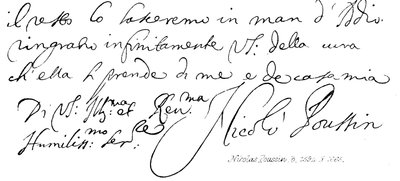 il resto lo lasceremo in man d'Iddio.
ringratio infinitamente V.S: della cura
ch'ella si prende di me e de casa mia
Di V.S: Ill:ma et Reu.ma
Humiliss:mo ser:re Nicolò Poussin
Nicolas Poussin